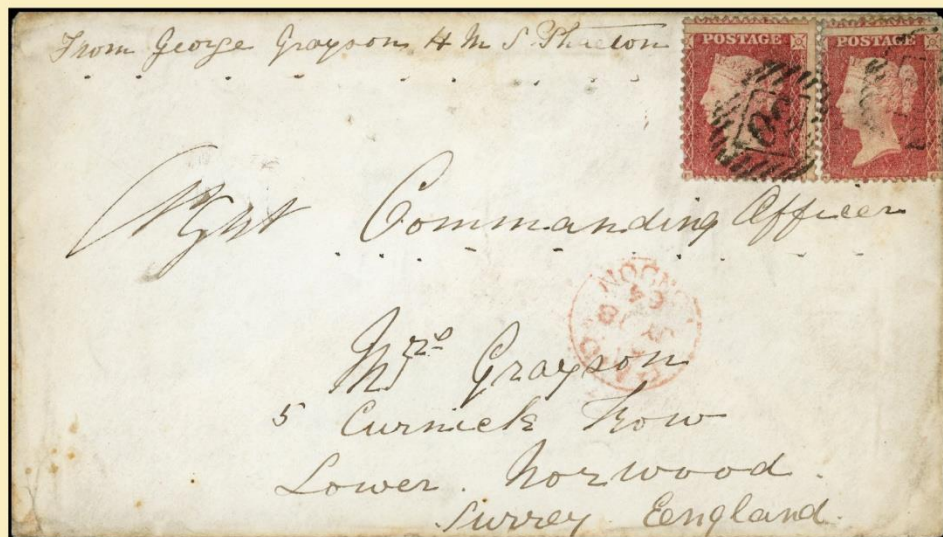 From George Grayson H M S Phaeton
POSTAGE POSTAGE
Commanding Officer
Mrs Grayson
5 Curnick Row
Lower Norwood.
Surrey Eengland.